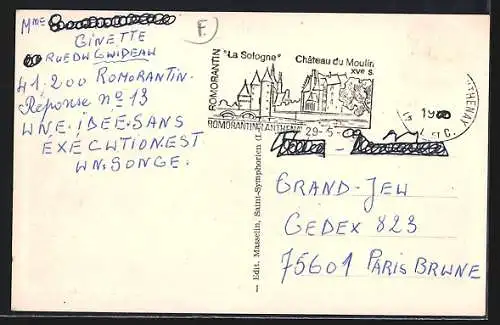 Mme
GINETTE
RUE DU GUIDEAU
41.200 ROMORANTIN.
Réponse no 13
UNE.IDEE.SANS
EXECUTION.EST
UN.SONGE.
E
ROMORANTIN
"La Sologne"
Château du Moulin
XVe S.
ROMORANTIN-LANTHENAY
29-5
THENAY
19
GRAND-JEU
CEDEX 823
75601 PARIS BRUNE
— Edit. Masselin, Saint-Symphorien